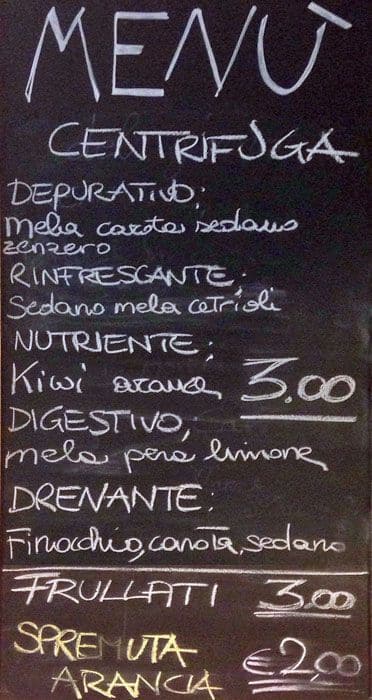 MENÙ
CENTRIFUGA
DEPURATIVO;
mela carota sedano
zenzero
RINFRESCANTE;
Sedano mela cetrioli
NUTRIENTE;
Kiwi 3.00
DIGESTIVO,
mela pera limone
DRENANTE:
Finocchio, carota, sedano
FRULLATI 3.00
SPREMUTA
ARANCIA €2,00